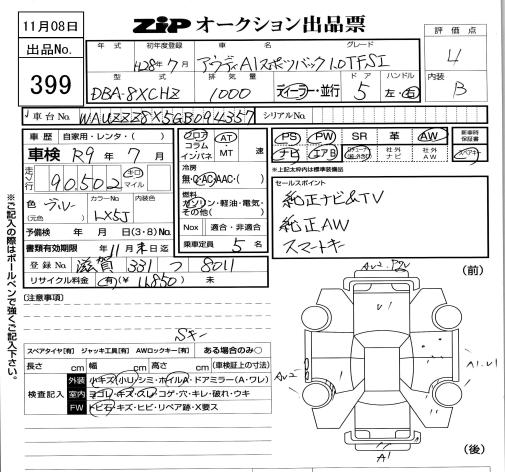 11月08日
出品No.
399
ZIP オークション出品票
評価点
4
内装
B
年式 初年度登録 車名 グレード
H28年7月 アウディA1スポーツバック1.0TFSI
型式 排気量 ドア ハンドル
DBA-8XCHZ 1000 ディーラー・並行 5 左・右
車台No. WAUZZZ8X5GB094357 シリアルNo.
車歴 自家用・レンタ・( )
車検 R9年7月
走行 90,502 キロ マイル
色 ブルー (元色) カラーNo. LX5J 内装色
予備検 年 月 日(3・8)No.
書類有効期限 年11月末日迄
登録No. 滋賀 331 つ 8011
リサイクル料金 有(¥11,850) 未
フロア コラム インパネ AT・MT 速
冷房 無・C・AC・AAC・( )
燃料 ガソリン・軽油・電気・その他( )
Nox 適合・非適合
乗車定員 5名
PS PW SR 革 AW 新車時保証書
ナビ エアB 社外ナビ 社外AW
*上記太枠内は標準装備品
セールスポイント
純正ナビ&TV
純正AW
スマートキー
※ご記入の際はボールペンで強くご記入下さい。
[注意事項]
Sキー
スペアタイヤ[有] ジャッキ工具[有] AWロックキー[有] ある場合のみ○
長さ cm 幅 cm 高さ cm (車検証上の寸法)
検査記入
外装 小キズ・小U・シミ・ホイルA・ドアミラー(A・ワレ)
室内 ヨゴレ・キズ・スレ・コゲ・穴・キレ・破れ・ウキ
FW トビ石・キズ・ヒビ・リペア跡・X要ス
(前)
U1
A1.U1
A1
(後)